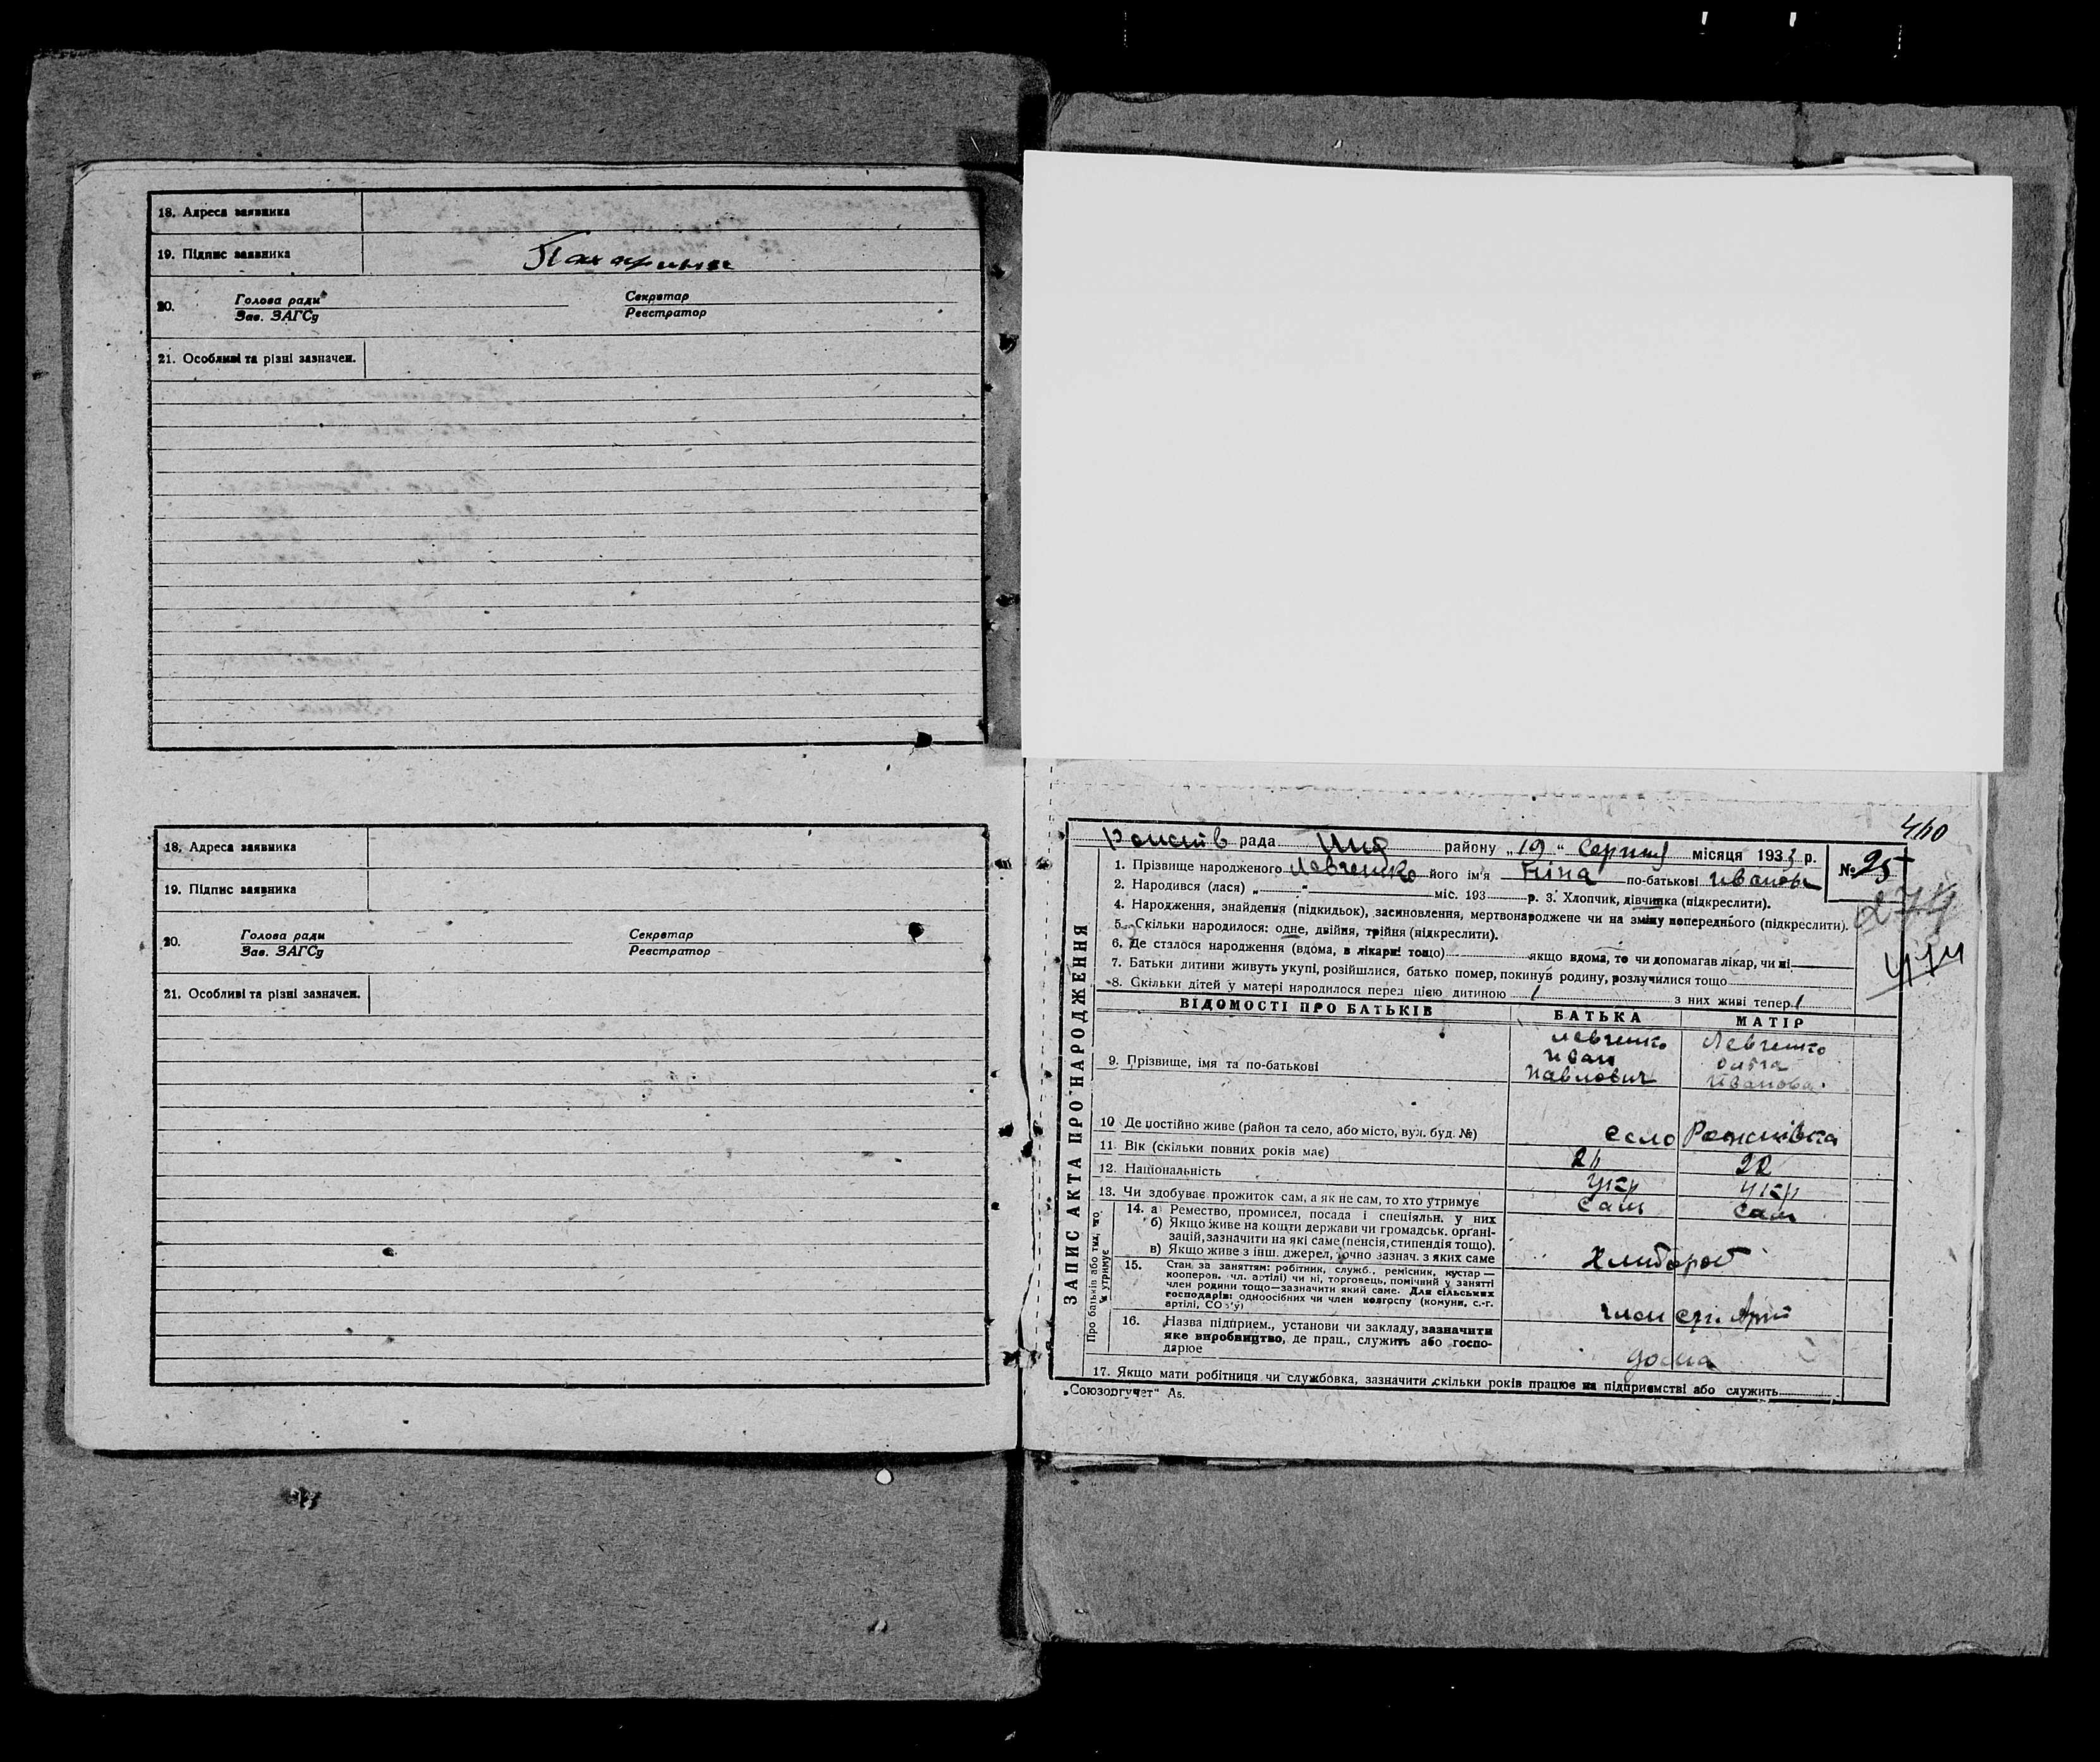 18. Адреса заявника
19. Підпис заявника
20. Голова ради Секретар
Зав. ЗАГСу Реєстратор
21. Особливі та різні зазначен.
18. Адреса заявника
19. Підпис заявника
20. Голова ради Секретар
Зав. ЗАГСу Реєстратор
21. Особливі та різні зазначен.
460
рада району „19“ Серпня місяця 1933 р.
№ 25
1. Прізвище народженого Левченко його ім'я Ніна по-батькові Иванов
2. Народився (лася) „ “ міс. 193 р. 3. Хлопчик, дівчинка (підкреслити).
4. Народження, знайдення (підкидьок), засиновлення, мертвонароджене чи на зміну попереднього (підкреслити).
274
5. Скільки народилося: одне, двійня, трійня (підкреслити).
6. Де сталося народження (вдома, в лікарні тощо) якщо вдома, то чи допомагав лікар, чи ні
474
7. Батьки дитини живуть укупі, розійшлися, батько помер, покинув родину, розлучилися тощо
8. Скільки дітей у матері народилося перед цією дитиною 1 з них живі тепер 1
ЗАПИС АКТА ПРО НАРОДЖЕННЯ
ВІДОМОСТІ ПРО БАТЬКІВ БАТЬКА МАТІР
Левченко Левченко
9. Прізвище, імя та по-батькові Иван
Павлович Иванова
10 Де постійно живе (район та село, або місто, вул. буд. №) село Рожнівка
11. Вік (скільки повних років має) 26 22
12. Національність укр укр
13. Чи здобуває прожиток сам, а як не сам, то хто утримує сам сам
Про батьків або тих, хто їх утримує
14. а) Ремество, промисел, посада і спеціяльн. у них
б) Якщо живе на кошти держави чи громадськ. органі-
зацій, зазначити на які саме (пенсія, стипендія тощо).
в) Якщо живе з інш. джерел, точно зазнач. з яких саме Хлибороб
15. Стан за заняттям: робітник, служб., ремісник, кустар —
кооперов. чл. артілі) чи ні, торговець, помічний у занятті
член родини тощо—зазначити який саме. Для сільських
господарів: одноосібних чи член колгоспу (комуни, с.-г.
артілі, СОЗ'у) член
16. Назва підприєм., установи чи закладу, зазначити
яке виробництво, де прац., служить або госпо-
дарює дома
17. Якщо мати робітниця чи службовка, зазначити скільки років працює на підприємстві або служить
„Союзоргучет“ А5.